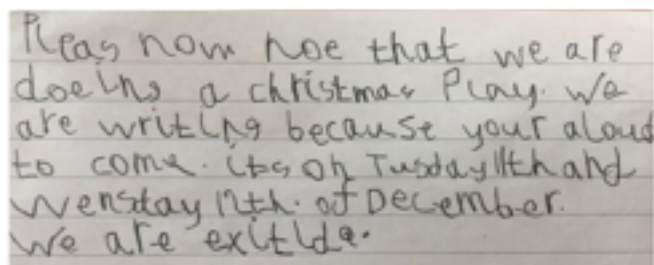 Pleas now noe that we are
doeing a christmas Play. We
are writing because your aloud
to come. its on Tusday 11th and
Wensday 12th. of December.
We are exitide.